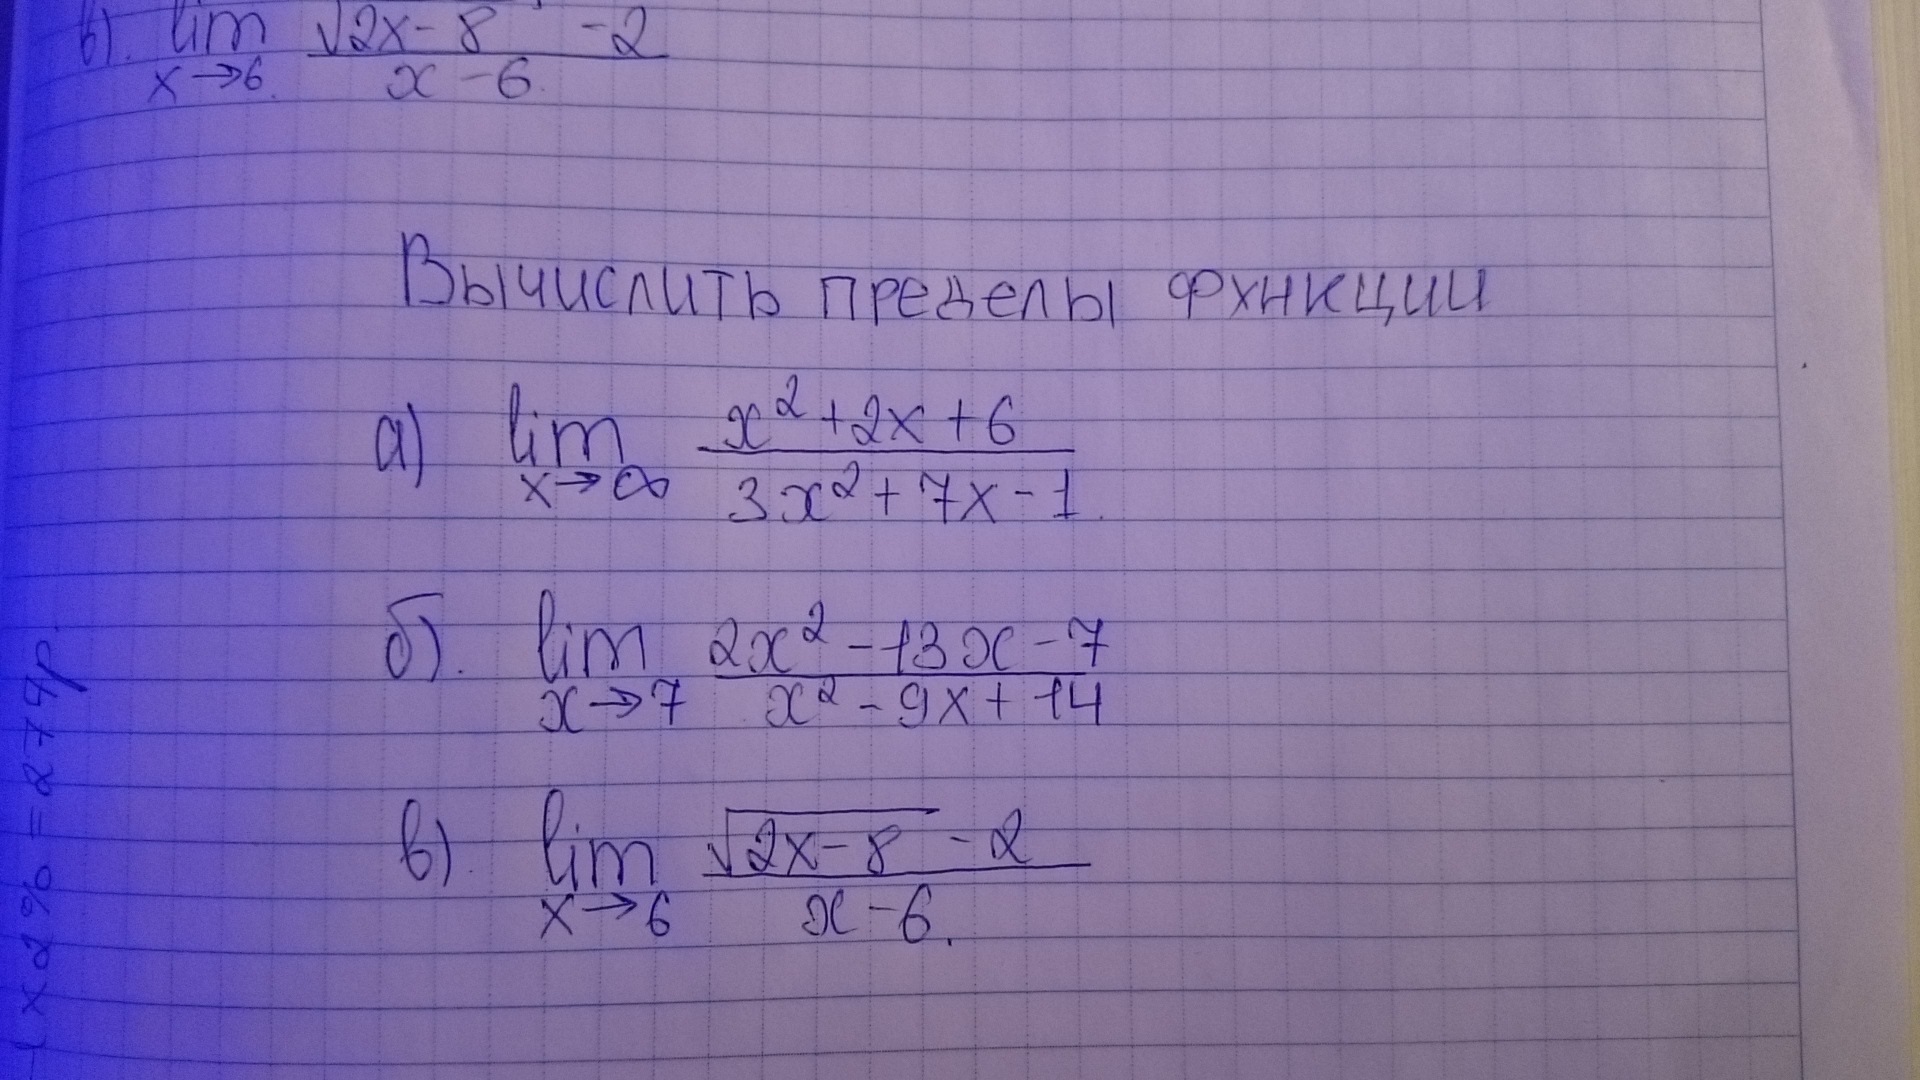 в). lim √2x-8 -2
x→6. x-6.
Вычислить пределы фхнкции
а) lim x²+2x+6
x→∞ 3x²+7x-1.
б). lim 2x²-13x-7
x→7 x²-9x+14
в). lim √2x-8 -2
x→6 x-6.
x2% = 274р.